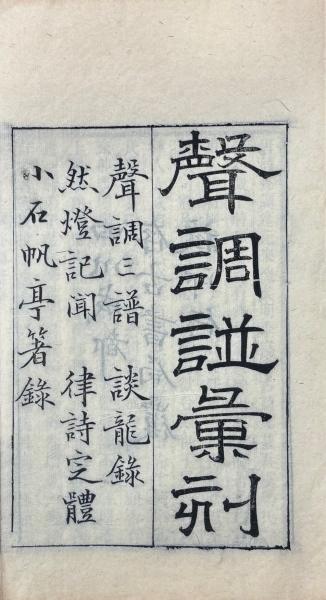 聲調譜彙刻
聲調三譜 談龍錄
然燈記聞 律詩定體
小石帆亭著錄